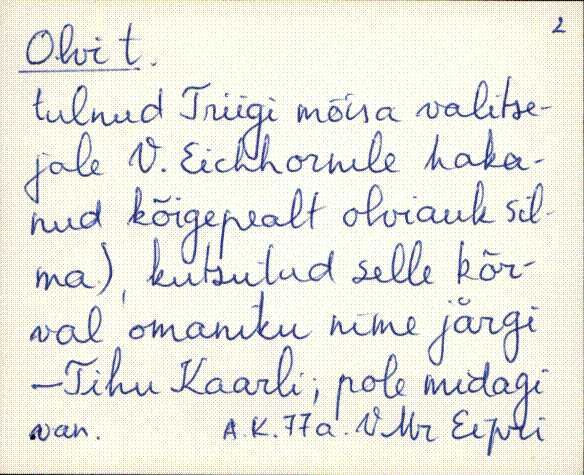 2
Olvi t.
tulnud Triigi mõisa valitse-
jale V. Eichhornile haka-
nud kõigepealt olviauk sil-
ma), kutsutud selle kõr-
val omaniku nime järgi
—Tihu Kaarli; pole midagi
van. A.K.77a. VMr Eipri